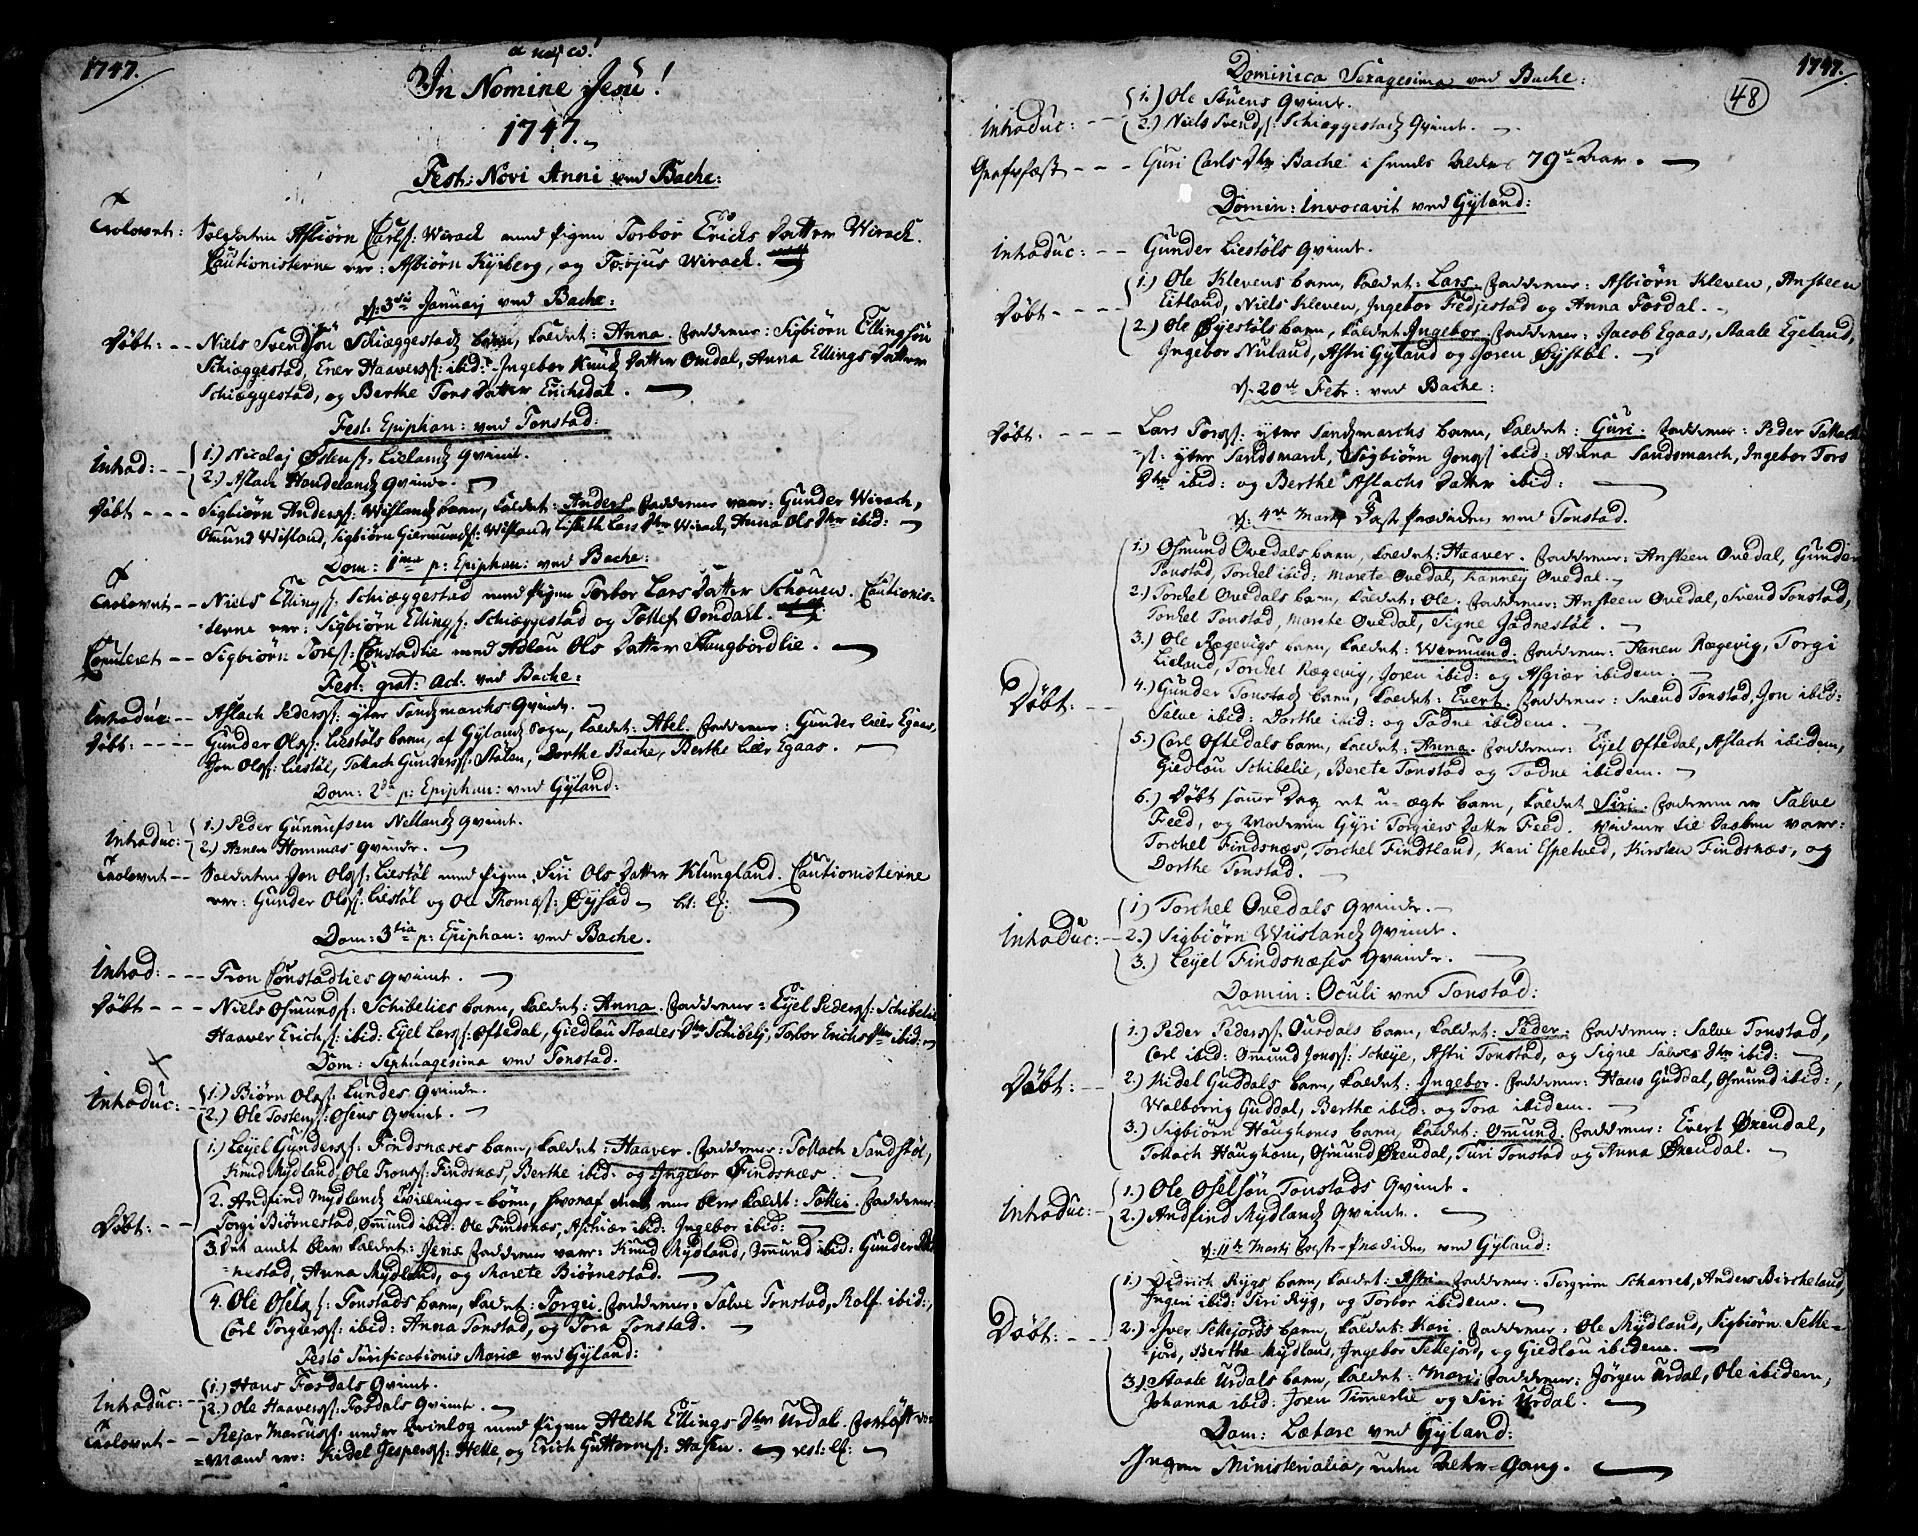 1747.
In Nomine Jesu!
1747.
Fest: Novi Anni ved Bache:
Trolovet: Soldaten Asbiørn Carls: Wirach med Pigen Torbor Erichs Datter Wirach.
Cautionisterne er: Asbiørn Kyrberg, og Torjus Wirach.
d. 3die Januarj ved Bache:
Døbt: -- Niels Svendsøn Schiæggestads barn, kaldet: Anna. Fadderne: Sigbiørn Ellingsøn
Schiæggestad, Ener Haavers: ibid: Ingebor Knuds Datter Omdal, Anna Ellings Datter
Schiæggestad, og Berthe Tors Datter Erichsdal.
Fest: Epiphan: ved Tonstad:
Introd: -- 1.) Nicolaj Østens: Lielands Qvinde.
2.) Aslach Handelands Qvinde.
Døbt --- Sigbiørn Anders: Wislands barn, kaldet: Anders. Fadderne vaar: Gunder Wirach,
Omund Wisland, Sigbiørn Giermunds: Wisland, Lisbeth Lars Dtr Wirach, Anna Ols Dtr ibid:
Dom: 1ma p: Epiphan: ved Bache:
Trolovet -- Niels Ellings: Schiæggestad med Pigen Torbor Lars Datter Schouen. Cautionis-
terne er: Sigbiørn Ellings: Schiæggestad og Tollef Omdal.
Copuleret -- Sigbiørn Tores: Constadlie med Adlau Ols Datter Haugbordlie.
Fest: grat: act. ved Bache:
Introduc -- Aslach Peders: yter Sandsmarchs Qvinde.
Døbt: ---- Gunder Ols: Liestøls barn, af Gylands Sogn, kaldet: Abel. Fadderne: Gunder lille Egaas,
Jon Ols: Liestøl, Tallach Gunders: Stølen, Dorthe Bache, Berthe lille Egaas.
Dom: 2da p: Epiphan: ved Gyland:
Introduc: 1.) Peder Gunnufsen Nellands Qvinde.
2.) Asnen Hommas Qvinde.
Trolovet -- Soldaten Jon Ols: Liestøl med Pigen Siri Ols Datter Klungland. Cautionisterne
er: Gunder Ols: Liestøl og Ole Thomæs: Øysad
Dom: 3tia p: Epiphan: ved Bache.
Introd: --- Tron Constadlies Qvinde.
Døbt --- Niels Osmunds: Schibelies barn, kaldet: Anna. Fadderne: Eyel Peders: Schibelie
Haaver Erichs: ibid: Eyel Lars: Oftedal, Giedlau Staales Dtr Schibelj, Torbor Erichs Dtr ibid:
Dom: Septuagesima ved Tonstad.
Introduc: 1.) Biørn Ols: Lundes Qvinde.
2.) Ole Tostens: Osens Qvinde.
1.) Leyel Gunders: Findsnæses barn, kaldet: Haaver. Fadderne: Tallach Sandstøl,
Knud Mydland, Ole Trons: Findsnæs, Berthe ibid: og Ingebor Findsnæs
2. Andfind Mydlands Tvillinge-børn, hvoraf det ene blev kaldet: Tollei. Fadderne:
Døbt: -- Torgi Biørnestad, Omund ibid: Ole Findsnæs, Aschier ibid: Ingebor ibid:
3. Det andet blev kaldet: Jens. Fadderne vaar: Knud Mydland, Omund ibid: Gunder Biør-
nestad, Anna Mydland, og Marete Biørnestad.
4. Ole Osels: Tonstads barn, kaldet: Torgei. Fadderne: Salve Tonstad, Rolf ibid:,
Carl Torgiers: ibid: Anna Tonstad, og Tora Tonstad.
Festo Purificationis Mariæ ved Gyland:
Introduc: 1.) Hans Fosdals Qvinde.
2.) Ole Haavers: Fosdals Qvinde.
Trolovet -- Rejar Marcus: under Qvinlog med Pigen Aleth Ellings Dtr Urdal.
mænd er: Kidel Jespers: Helle, og Erich Guttorms: Aasen.
1747.
48
Dominica Sexagesima ved Bache:
Introduc: -- 1.) Ole Stuens Qvinde.
2.) Niels Svends: Schiæggestads Qvinde.
Grafrfæst --- Guri Carls Dtr Bache i hendes Alders 79de Aar.
Domin: Invocavit ved Gyland:
Introduc: -- Gunder Liestøls Qvinde.
1.) Ole Klevens barn, kaldet: Lars. Fadderne: Asbiørn Kleven, Ansteen
Døbt ---- Eitland, Niels Kleven, Ingebor Fredjestad og Anna Fosdal.
2.) Ole Øyestøls barn, kaldet: Ingebor. Fadderne: Jacob Egaas, Staale Egeland,
Ingebor Nuland, Astri Gyland og Joren Øystøl.
d. 20de Febr: ved Bache:
Døbt. ---- Lars Tores: yter Sandsmarchs barn, kaldet: Guri. Fadderne: Peder Tallach
s: yter Sandsmarch, Sigbiørn Jons: ibid: Anna Sandsmarch, Ingebor Tors
Dtr ibid: og Berthe Aslachs Datter ibid:
d: 4de Martj Faste Prædiken, ved Tonstad.
1.) Osmund Ovedals barn, kaldet: Haaver. Fadderne: Ansteen Ovedal, Gunder
Tonstad, Torchel ibid: Marete Ovedal, Ranney Ovedal.
2.) Torchel Ovedals barn, kaldet: Ole. Fadderne: Ansteen Ovedal, Svend Tonstad,
Torchel Tonstad, Marete Ovedal, Signe Gådnestøl.
3.) Ole Rægevigs barn, kaldet: Wermund. Fadderne: Aanen Rægevig, Torgi
Lieland, Torchel Rægevig, Joren ibid: og Asgiær ibidem.
Døbt: -- 4.) Gunder Tonstads barn, kaldet: Evert. Fadderne: Svend Tonstad, Jon ibid:
Salve ibid: Dorthe ibid: og Todne ibidem.
5.) Carl Oftedals barn, kaldet: Anna. Fadderne: Eyel Oftedal, Aslach ibidem,
Giedlau Schibelie, Berete Tonstad og Todne ibidem.
6.) Døbt samme Dag et u-ægte barn, kaldet Siri. Faderen er Salve
Feed, og Moderen Gyri Torgiers Datter Feed. Vidner til Daaben vare:
Torchel Findsnæs, Torchel Findtland, Kari Espetved, Kirsten Findsnæs, og
Dorthe Tonstad.
1) Torchel Ovedals Qvinde.
Introduc: -- 2.) Sigbiørn Wiislands Qvinde.
3.) Leyel Findsnæses Qvinde.
Domin: Oculi ved Tonstad:
1.) Peder Peders: Ousdals barn, kaldet: Peder. Fadderne: Salve Tonstad,
Carl ibid: Omund Jons: Scheye, Astri Tonstad, og Signe Salves Dtr ibid:
Døbt: -- 2.) Kidel Guddals barn, kaldet: Ingebor. Fadderne: Hans Guddal, Osmund ibid:,
Walborrig Guddal, Berthe ibid: og Tora ibidem.
3.) Sigbiørn Haughoms barn, kaldet: Omund. Fadderne: Evert Øxendal,
Tallach Haughom, Osmund Øxendal, Turi Tonstad og Anna Øxendal.
1.) Ole Oselsøn Tonstads Qvinde.
Introduc: 2.) Andfind Mydlands Qvinde.
d: 11te Martj Faste-Prædiken, ved Gyland:
1.) Didrich Rygs barn, kaldet: Astri. Fadderne: Torgrim Scharret, Anders Bircheland,
Inger ibid: Siri Ryg, og Torbor ibidem.
Døbt: -- 2.) Iver Sellejords barn, kaldet: Kari. Fadderne: Ole Mydland, Sigbiørn Selle-
jord, Berthe Mydland, Ingebor Sellejord, og Giedlau ibidem.
3.) Staale Urdals barn, kaldet: Mari. Fadderne: Jørgen Urdal, Ole ibidem,
Johanna ibid: Joren Timmerlie og Siri Urdal.
Dom: Lætare ved Gyland:
Ingen Ministerialia, uden Alter-Gang.